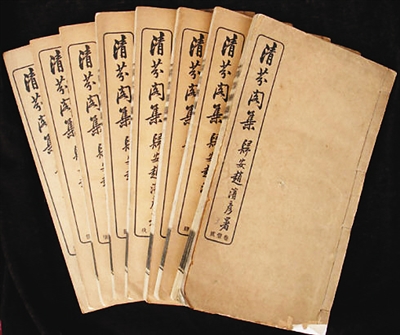 清芬閣集 歸安趙濱彥署
清芬閣集 歸安趙
清芬閣集
清芬閣集 歸安趙
清芬閣集 歸安
清芬閣集
清芬閣集
清芬閣集